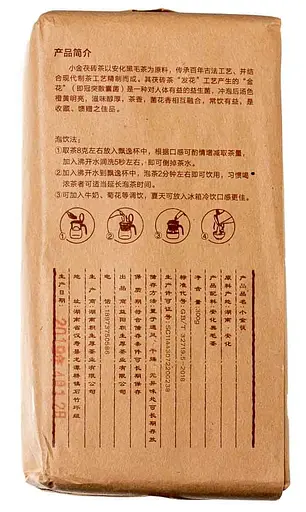 产品简介
小金茯砖茶以安化黑毛茶为原料,传承百年古法工艺、并结
合现代制茶工艺精制而成。其茯砖茶“发花”工艺产生的“金
花”(即冠突散囊菌)是一种对人体有益的益生菌,冲泡后汤色
橙黄明亮,滋味醇厚,茶香,菌花香相互融合,常饮有益,是
收藏、馈赠之佳品。
泡饮法:
①取茶8克左右放入飘逸杯中,根据口感可酌情增减取茶量,
加入沸开水润洗5秒左右,即可倒掉茶水。
②加入沸开水到飘逸杯中,泡茶2分钟左右即可饮用,习惯喝
浓茶者可适当延长泡茶时间。
③可加入牛奶、菊花等调饮,夏天可放入冰箱冷饮口感更佳。
① ② ③ ④
产品品名:小金茯
原料产地:湖南·安化
产品配料:安化黑毛茶
净含量:300g
标准代号:GB/T 32719.5-2018
生产许可证号:SC11443072200239
储存方法:置于通风、干燥、无异味处可长期存放
保质期:符合储存条件可长期保存
出品商:益阳积生厚茶业有限公司
电话:18973750586
生产商:湖南积生厚茶业有限公司
地址:湖南省汉寿县龙潭桥镇石竹坪组
生产日期:
2019年4月28